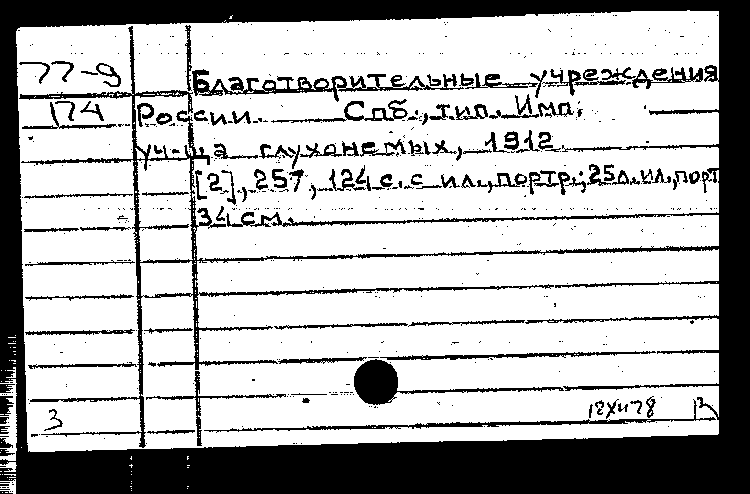 77-9 Благотворительные учреждения
174 России. Спб., тип. Имп.
уч-ща глухонемых, 1912
[2], 257, 124 с. с ил., портр.; 25л. ил., порт
34 см.
3